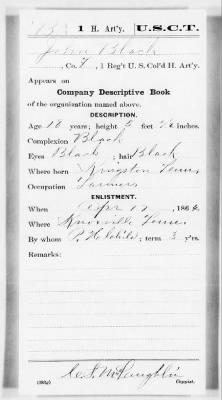 B 1 H. Art'y. U.S.C.T.
John Black
, Co. , 1 Reg't U. S. Col'd H. Art'y.
Appears on
Company Descriptive Book
of the organization named above.
DESCRIPTION.
Age 18 years; height 5 feet inches.
Complexion Black
Eyes Black ; hair Black
Where born Kingston Tenn
Occupation Farmer
ENLISTMENT.
When Apr , 186
Where Knoxville Tenn
By whom ; term 3 y'rs.
Remarks:
McLaughlin
Copyist.